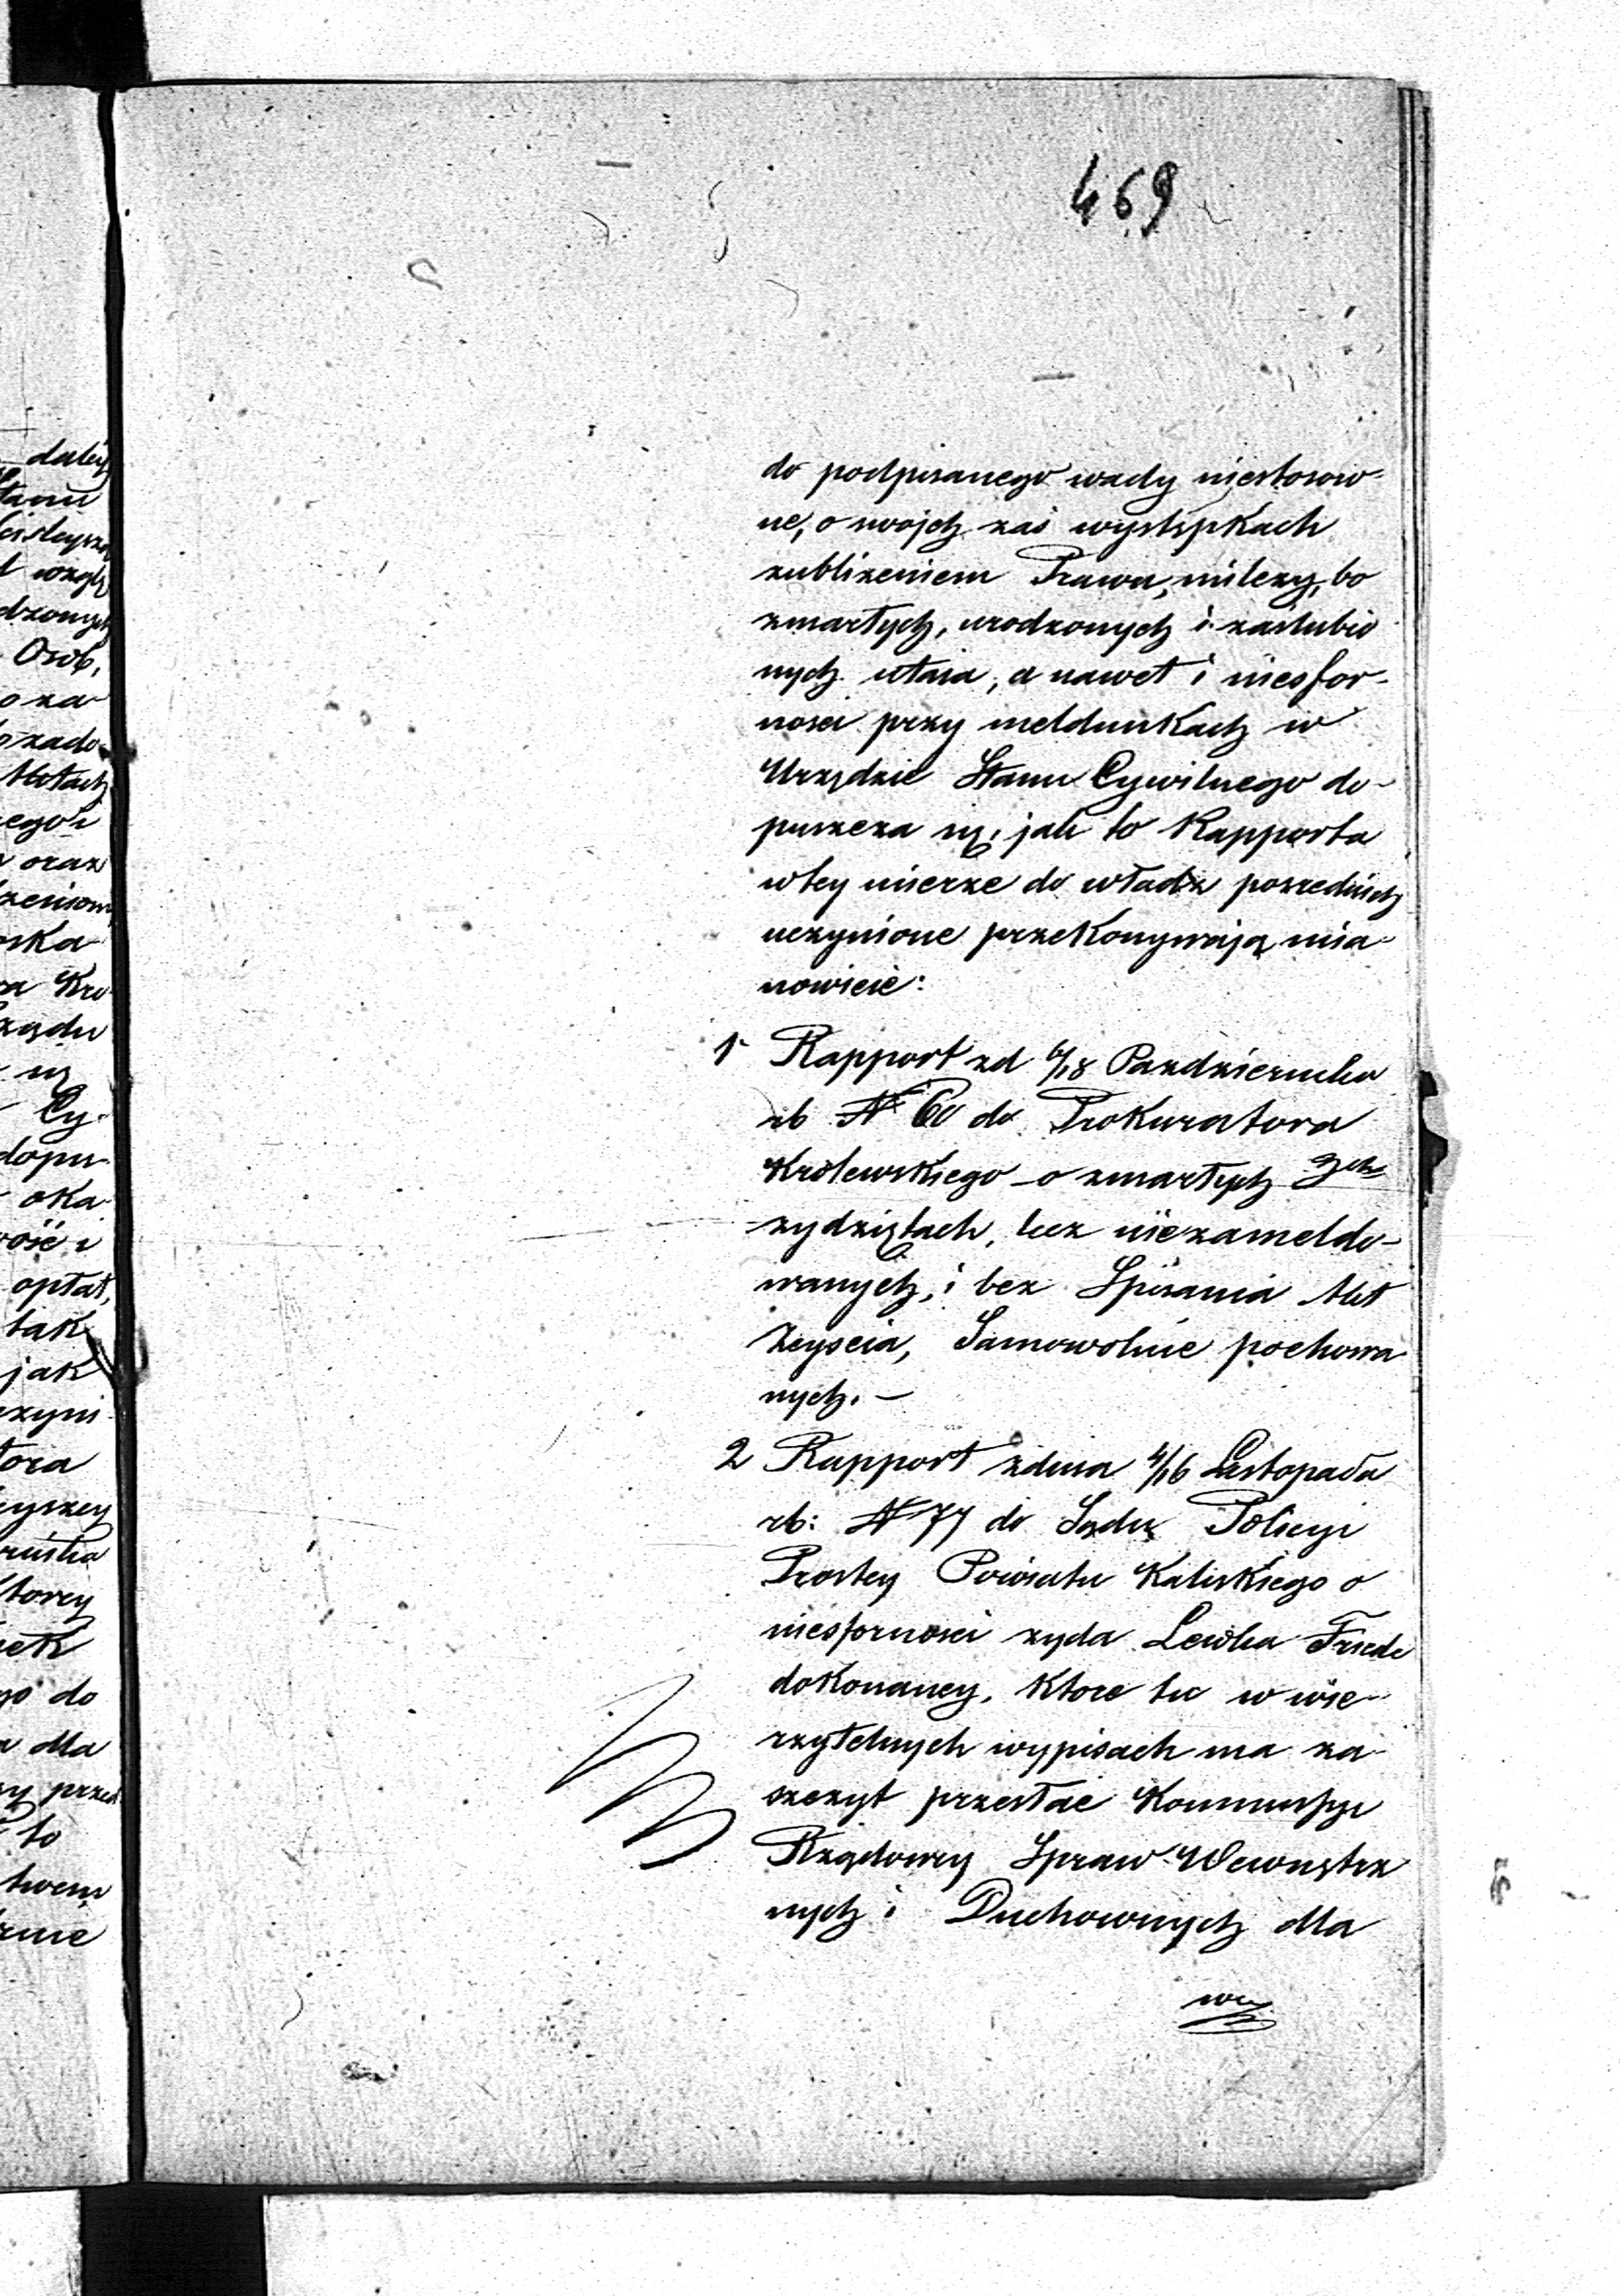 469
do podpisanego wady niestosow-
ne, o swojch zaś występkach
zubliżeniem Prawu, milczy, bo
zmartych, urodzonych i zaślubio
nych utaia, a nawet i niesfor-
ności przy meldunkach w
Urzędzie Stanu Cywilnego do-
puszcza się, jak to Rapporta
wtey mierze do władz pośrednich
uczynione przekonywają mia-
nowicie:
1 Rapport zd 6/18 Pazdziernika
rb N 60 do Prokuratora
Królewskiego – o zmartych 3ch
zydziętach, lecz niezameldo-
wanych, i bez Spisania Akt
Zeyscia, Samowolnie pochowa
nych. –
2 Rapport zdnia 4/16 Listopada
rb: N 77 do Sądu Policyi
Prostey Powiatu Kaliskiego o
niesforności zyda Lewka Friede
dokonaney, które tu w wie-
rzytelnych wypisach ma za-
szczyt przesłać Kommissyi
Rządowey Spraw Wewnętrz
nych i Duchownych dla
daley
Osób,
o za
oraz
Cy-
dopu-
oka
opłat,
tak
jak
do
dla
to